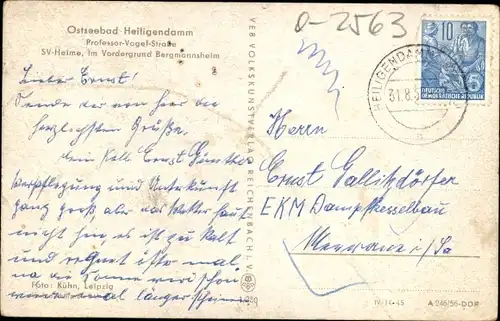 Ostseebad Heiligendamm
Professor-Vogel-Straße
SV-Heime, im Vordergrund Bergmannsheim
0-2563
10
DEUTSCHE
DEMOKRATISCHE REPUBLIK
HEILIGENDAMM
31.8.
a
Lieber Ernst!
Sende dir von hier die
herzlichsten Grüße.
Dein Koll. Ernst Günther
Verpflegung und Unterkunft
ganz groß, aber das Wetter haut
nicht hin, es ist zu kalt
und regnet
na die Sonne wird schon
länger scheinen
VEB VOLKSKUNSTVERLAG REICHENBACH i. V.
Herrn
Ernst Gallitzdörfer
EKM Dampfkesselbau
Meerane i/Sa
Foto: Kühn, Leipzig
IV-14-45
A 246/56-DDR